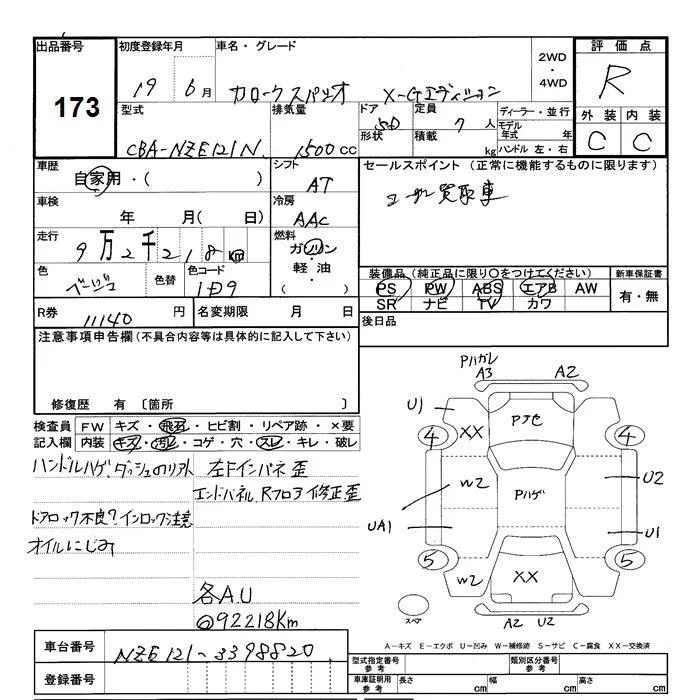 出品番号
173
初度登録年月
19 6月
車名・グレード
カローラスパシオ X-Gエディション
2WD
・
4WD
評価点
R
外装 内装
C C
型式
CBA-NZE121N
排気量
1500cc
ドア
形状
定員
7人
積載
kg
ディーラー・並行
モデル
年式 年
ハンドル 左・右
車歴
自家用・( )
シフト
AT
セールスポイント (正常に機能するものに限ります)
ユーザー買取車
車検
年 月( 日)
冷房
AAC
走行
9万2千218km
燃料
ガソリン
・
軽油
・
( )
色
ベージュ
色替
色コード
1D9
装備品(純正品に限り○をつけてください)
PS PW ABS エアB AW
SR ナビ TV カワ
新車保証書
有・無
R券
11140円
名変期限 月 日
後日品
注意事項申告欄(不具合内容等は具体的に記入して下さい)
修復歴 有 〔箇所 〕
検査員 FW キズ・飛石・ヒビ割・リペア跡・×要
記入欄 内装 キズ・汚レ・コゲ・穴・スレ・キレ・破レ
ハンドルハゲ、ダッシュのリ外
左Fインパネ歪
エンドパネル、Rフロア修正歪
ドアロック不良?インロック注意
オイルにじみ
各A.U
@92218Km
Pハガレ
A3 A2
U1
XX
Pアセ
4 4
W2
Pハゲ
U2
UA1
U1
5 5
W2
XX
スペア
A2 U2
A－キズ E－エクボ U－凹み W－補修跡 S－サビ C－腐食 XX－交換済
車台番号
NZE121-3398820
登録番号
型式指定番号
参考
類別区分番号
参考
車庫証明用
参考
長さ cm
幅 cm
高さ cm